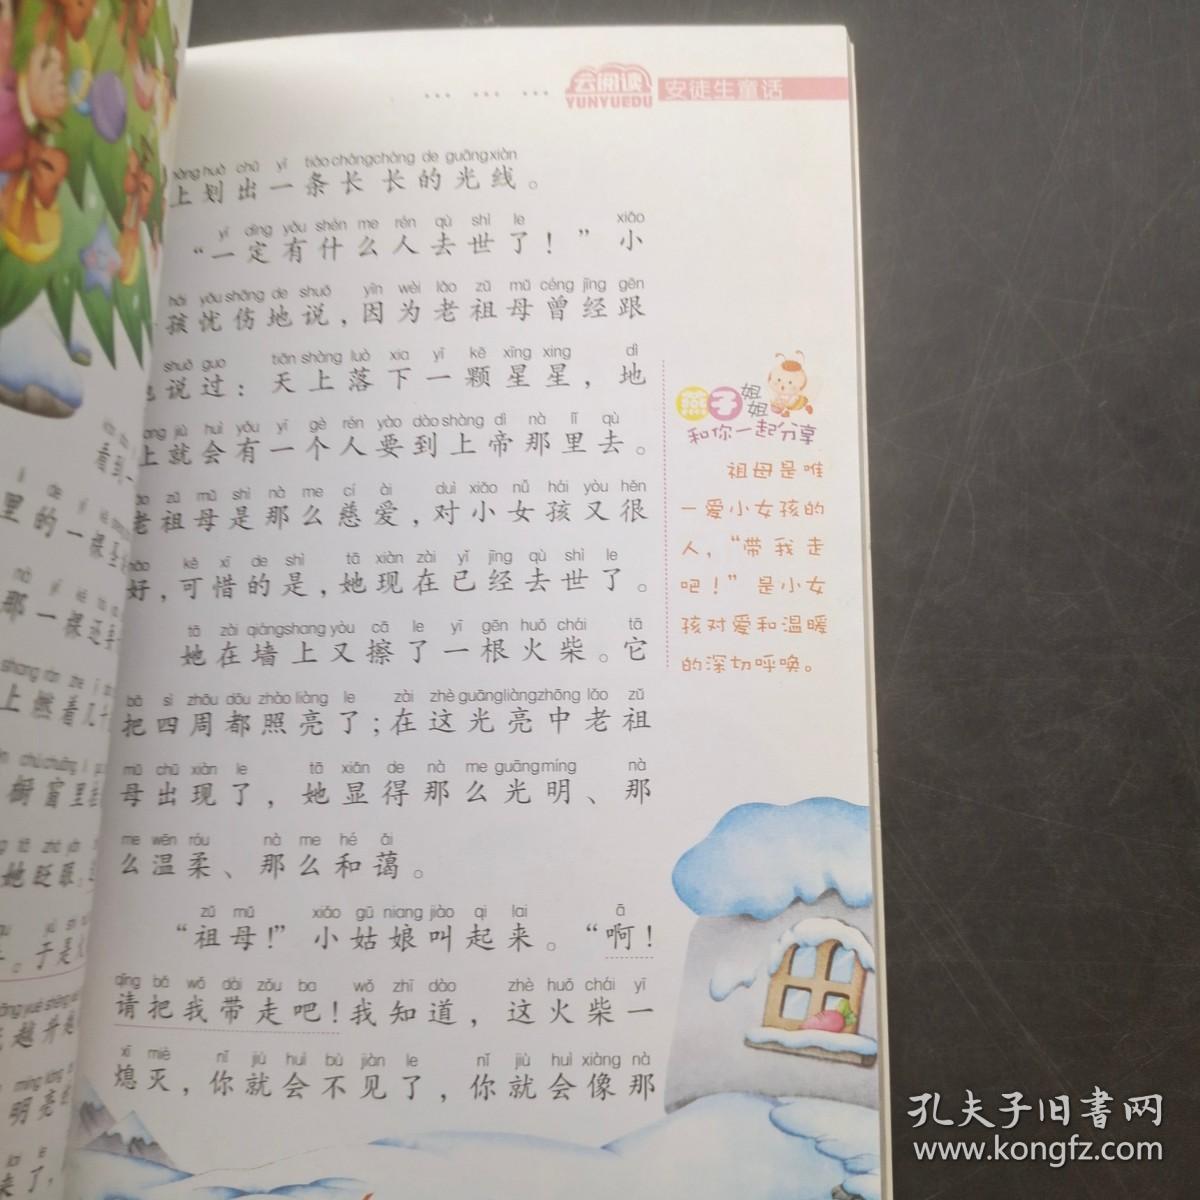 云阅读
YUNYUEDU 安徒生童话
huà chū yī tiáo chángcháng de guāngxiàn
上划出一条长长的光线。
yī dìng yǒu shén me rén qù shì le xiǎo
“一定有什么人去世了!”小
hái yōu shāng de shuō yīn wèi lǎo zǔ mǔ céng jīng gēn
孩忧伤地说,因为老祖母曾经跟
shuō guo tiān shàng luò xia yī kē xīng xing dì
说过:天上落下一颗星星,地
jiù huì yǒu yī gè rén yào dào shàng dì nà lǐ qù
上就会有一个人要到上帝那里去。
zǔ mǔ shì nà me cí ài duì xiǎo nǚ hái yòu hěn
老祖母是那么慈爱,对小女孩又很
hǎo kě xī de shì tā xiàn zài yǐ jīng qù shì le
好,可惜的是,她现在已经去世了。
tā zài qiángshang yòu cā le yī gēn huǒ chái tā
她在墙上又擦了一根火柴。它
bǎ sì zhōu dōu zhào liàng le zài zhè guāngliàngzhōng lǎo zǔ
把四周都照亮了;在这光亮中老祖
mǔ chū xiàn le tā xiǎn de nà me guāngmíng nà
母出现了,她显得那么光明、那
me wēn róu nà me hé ǎi
么温柔、那么和蔼。
zǔ mǔ xiǎo gū niang jiào qi lai ā
“祖母!”小姑娘叫起来。“啊!
qǐng bǎ wǒ dài zǒu ba wǒ zhī dào zhè huǒ chái yī
请把我带走吧!我知道,这火柴一
xī miè nǐ jiù huì bù jiàn le nǐ jiù huì xiàng nà
熄灭,你就会不见了,你就会像那
子姐姐
和你一起分享
祖母是唯
一爱小女孩的
人,“带我走
吧!”是小女
孩对爱和温暖
的深切呼唤。
看到一
里的一棵圣
那一棵还要
上燃着几千
橱窗里挂
她眨眼,
。于是火
越升越
明亮的
来了,
孔夫子旧书网
www.kongfz.com